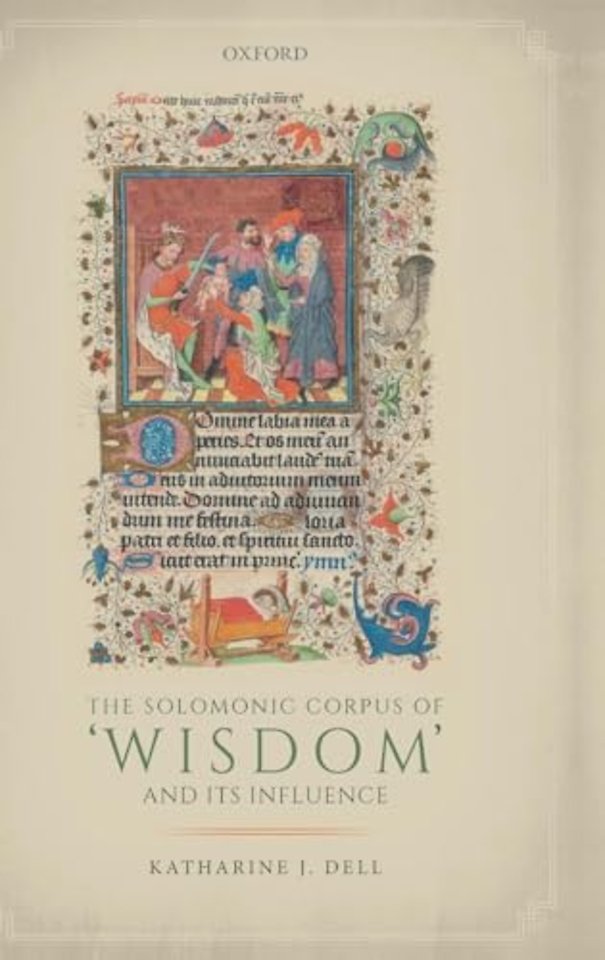 OXFORD
Domine labia mea a
peries. Et os meu an
nunciabit laude tua.
Deus in adiutorium meum
intende. Domine ad adiuvan
dum me festina. Gloria
patri et filio. et spiritui sancto.
Sicut erat in princ. ymn
THE SOLOMONIC CORPUS OF
‘WISDOM’
AND ITS INFLUENCE
KATHARINE J. DELL